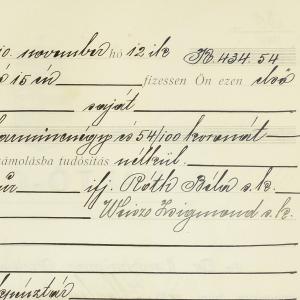 10. november hó 12 ik K. 434.54
15 én fizessen Ön ezen első
saját
harmincnégy és 54/100 koronát
számolásba tudósítás nélkül.
ifj. Róth Béla s.k.
Weisz Zsigmond s.k.